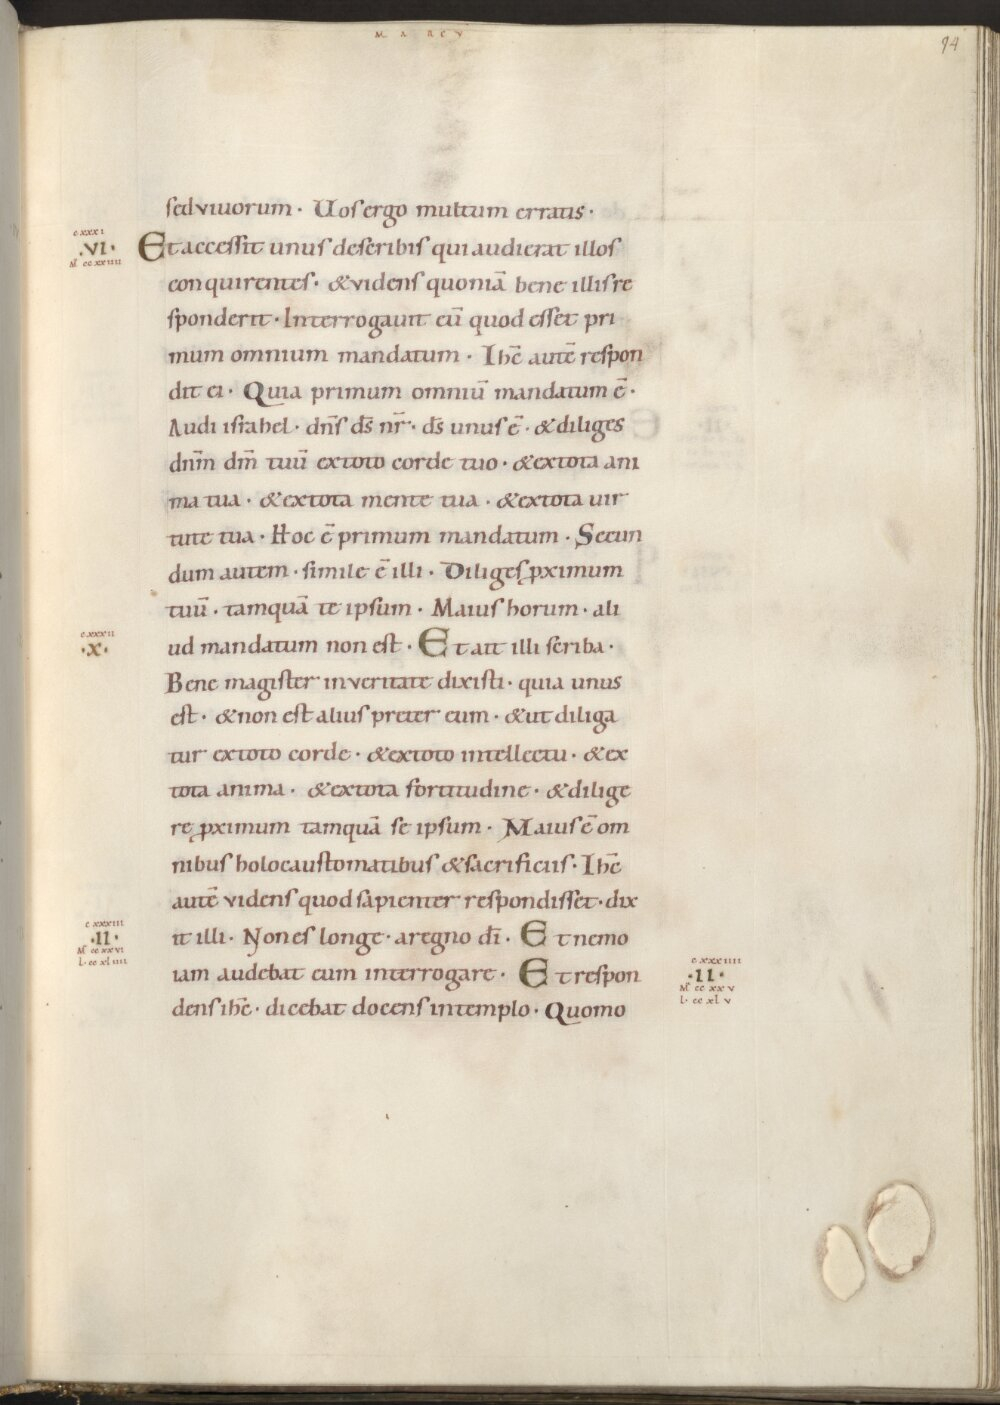 MARCV
94
sed vivorum · Vos ergo multum erratis ·
cxxxi
·VI·
M̄ ccxxiiii
Et accessit unus de scribis qui audierat illos
conquirentes · & videns quoniā bene illis re
sponderit · Interrogavit eū quod esset pri
mum omnium mandatum · Ihc̄ autē respon
dit ei · Quia primum omniū mandatum ē ·
Audi israhel · dn̄s ds̄ nr̄ · ds̄ unus ē · & diliges
dn̄m dm̄ tuū ex toto corde tuo · & ex tota ani
ma tua · & ex tota mente tua · & ex tota uir
tute tua · Hoc ē primum mandatum · Secun
dum autem · simile ē illi · Diliges ꝓximum
tuū · tamquā te ipsum · Maius horum · ali
cxxxii
·X·
ud mandatum non est · Et ait illi scriba ·
Bene magister in veritate dixisti · quia unus
est · & non est alius preter eum · & ut diliga
tur ex toto corde · & ex toto intellectu · & ex
tota anima · & ex tota fortitudine · & dilige
re ꝓximum tamquā se ipsum · Maius ē om
nibus holocaustomatibus & sacrificiis · Ihc̄
autē videns quod sapienter respondisset · dix
cxxxiii
·II·
M̄ ccxxvi
L · ccxliiii
it illi · Non es longe · a regno dī · Et nemo
iam audebat eum interrogare · Et respon
cxxxiiii
·II·
M̄ ccxxv
L · ccxlv
dens ihc̄ · dicebat docens in templo · Quomo